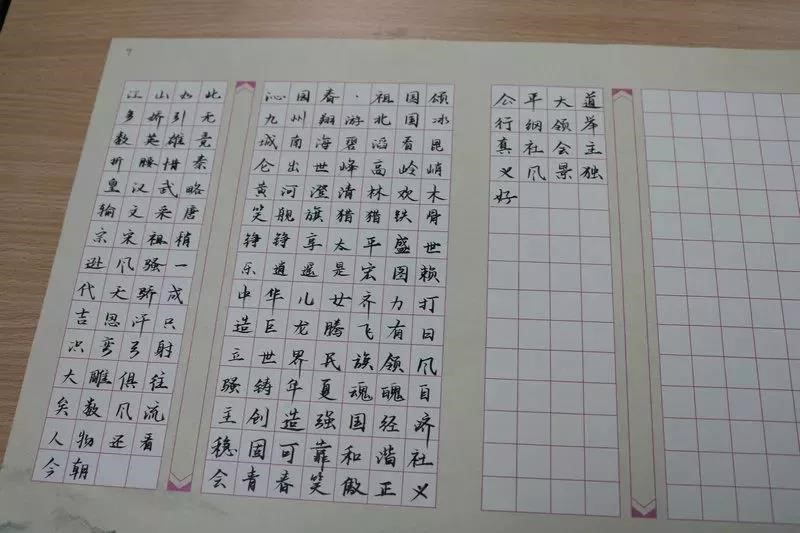 7
江山如此
多娇引无
数英雄竞
折腰惜秦
皇汉武略
输文采唐
宗宋祖稍
逊风骚一
代天骄成
吉思汗只
识弯弓射
大雕俱往
矣数风流
人物还看
今朝
沁园春·祖国颂
九州翔游北国冰
城南海碧滔看昆
仑出世峰高岭峭
黄河澄清林欢木
笑舰旗猎猎铁骨
铮铮享太平盛世
乐逍遥是宏图赖
中华儿女齐力打
造巨龙腾飞有日
立世界民族领风
骚铸华夏魂魄自
主创造强国经济
稳固可靠和谐社
会青春笑傲正义
公平大道
行纲领举
真社会主
义风景独
好